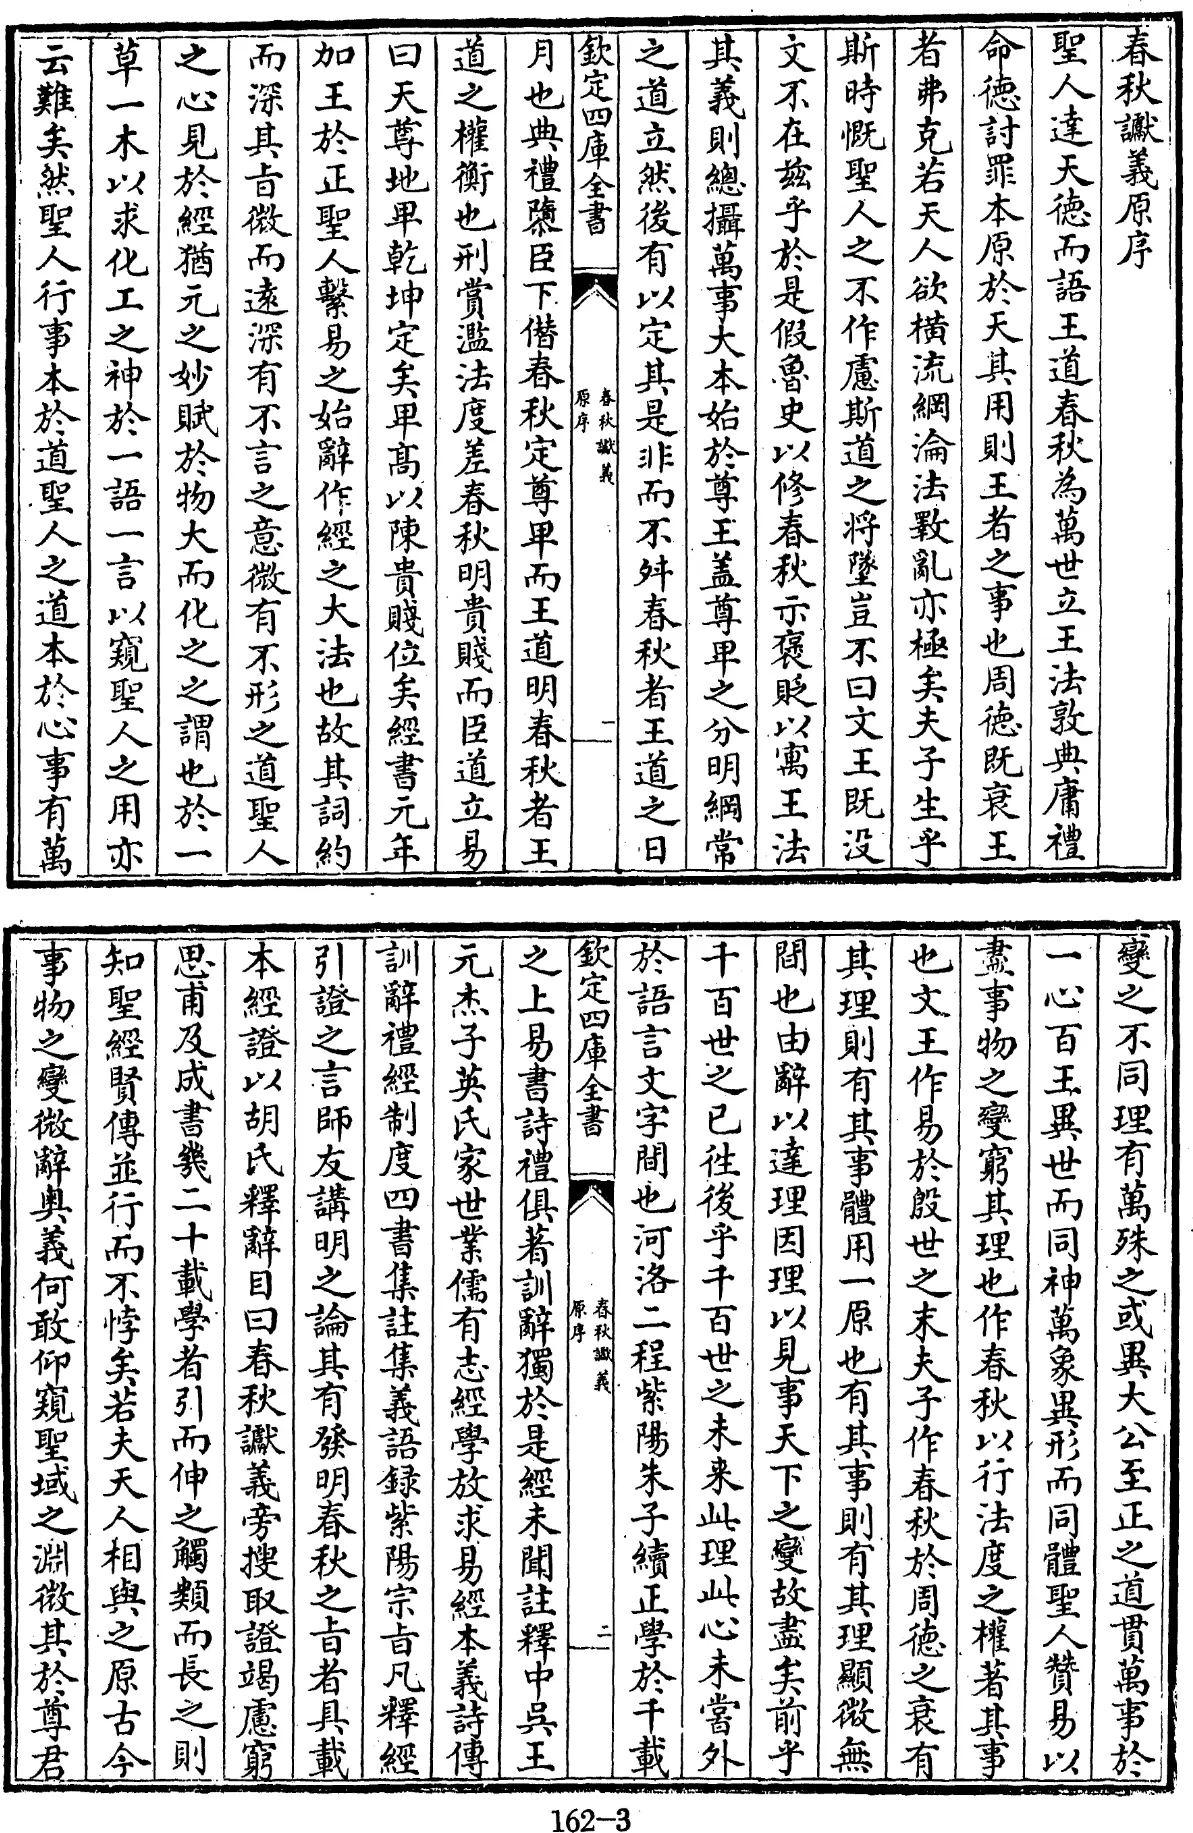 春秋讞義原序
聖人達天德而語王道春秋為萬世立王法敦典庸禮
命德討罪本原於天其用則王者之事也周德既衰王
者弗克若天人欲橫流綱淪法斁亂亦極矣夫子生乎
斯時慨聖人之不作慮斯道之將墜豈不曰文王既没
文不在兹乎於是假魯史以修春秋示褒貶以寓王法
其義則總攝萬事大本始於尊王蓋尊卑之分明綱常
之道立然後有以定其是非而不舛春秋者王道之日
欽定四庫全書
春秋讞義
原序
一
月也典禮隳臣下僭春秋定尊卑而王道明春秋者王
道之權衡也刑賞濫法度差春秋明貴賤而臣道立易
曰天尊地卑乾坤定矣卑高以陳貴賤位矣經書元年
加王於正聖人繫易之始辭作經之大法也故其詞約
而深其旨微而遠深有不言之意微有不形之道聖人
之心見於經猶元之妙賦於物大而化之之謂也於一
草一木以求化工之神於一語一言以窺聖人之用亦
云難矣然聖人行事本於道聖人之道本於心事有萬
變之不同理有萬殊之或異大公至正之道貫萬事於
一心百王異世而同神萬象異形而同體聖人贊易以
盡事物之變窮其理也作春秋以行法度之權著其事
也文王作易於殷世之末夫子作春秋於周德之衰有
其理則有其事體用一原也有其事則有其理顯微無
間也由辭以達理因理以見事天下之變故盡矣前乎
千百世之已往後乎千百世之未來此理此心未嘗外
於語言文字間也河洛二程紫陽朱子續正學於千載
欽定四庫全書
春秋讞義
原序
二
之上易書詩禮俱著訓辭獨於是經未聞註釋中吳王
元杰子英氏家世業儒有志經學放求易經本義詩傳
訓辭禮經制度四書集註集義語錄紫陽宗旨凡釋經
引證之言師友講明之論其有發明春秋之旨者具載
本經證以胡氏釋辭目曰春秋讞義旁搜取證竭慮窮
思甫及成書幾二十載學者引而伸之觸類而長之則
知聖經賢傳並行而不悖矣若夫天人相與之原古今
事物之變微辭奥義何敢仰窺聖域之淵微其於尊君
162-3